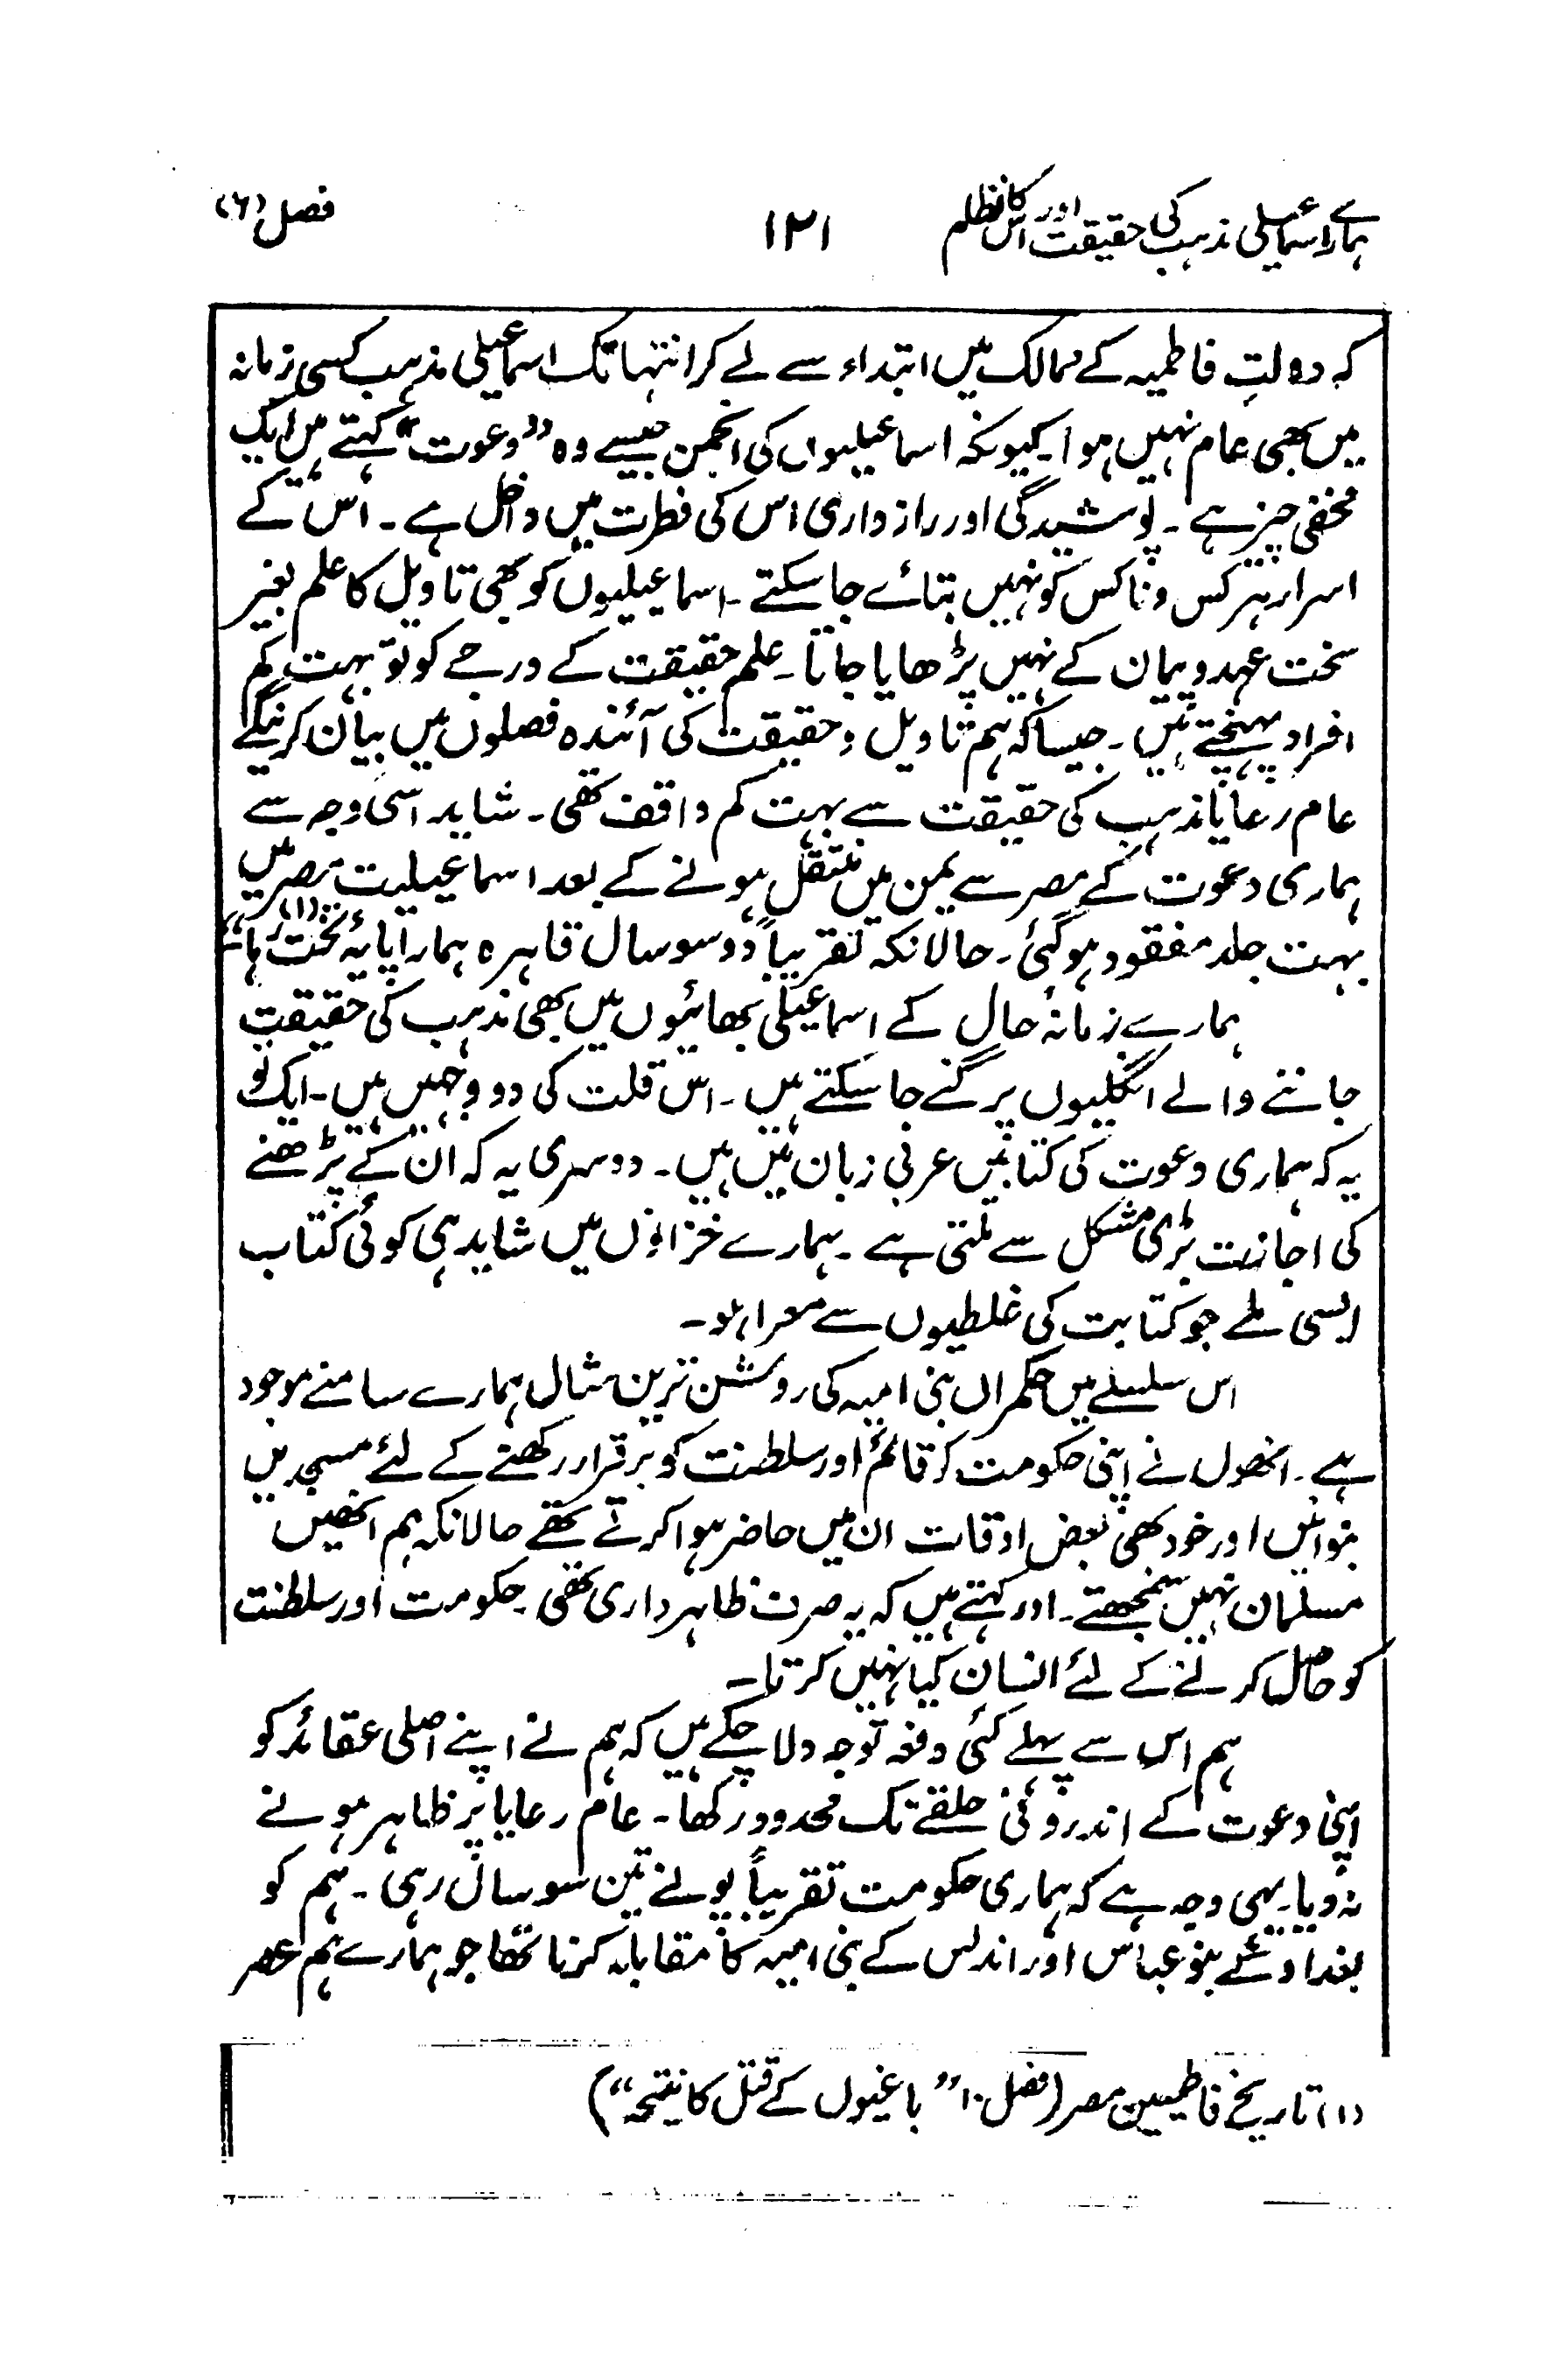 ہمارے اسماعیلی مذہب کی حقیقت اور اس کا نظام ۱۲۱ فصل (۶)
کہ دولتِ فاطمیہ کے ممالک میں ابتداء سے لے کر انتہا تک اسماعیلی مذہب کسی زمانہ
میں بھی عام نہیں ہوا۔ کیونکہ اسماعیلیوں کی انجمن جیسے وہ ”دعوت“ کہتے ہیں ایک
مخفی چیز ہے۔ پوشیدگی اور رازداری اس کی فطرت میں داخل ہے۔ اس کے
اسرار ہر کس و ناکس کو نہیں بتائے جا سکتے۔ اسماعیلیوں کو بھی تاویل کا علم بغیر
سخت عہد و پیمان کے نہیں پڑھایا جاتا۔ علم حقیقت کے درجے کو تو بہت کم
افراد پہنچتے ہیں۔ جیسا کہ ہم تاویل و حقیقت کی آئندہ فصلوں میں بیان کرینگے
عام رعایا مذہب کی حقیقت سے بہت کم واقف تھی۔ شاید اسی وجہ سے
ہماری دعوت کے مصر سے یمن میں منتقل ہونے کے بعد اسماعیلیت مصر میں
بہت جلد مفقود ہو گئی۔ حالانکہ تقریباً دو سو سال قاہرہ ہمارا پایۂ تخت رہا۔(۱)
ہمارے زمانۂ حال کے اسماعیلی بھائیوں میں بھی مذہب کی حقیقت
جاننے والے انگلیوں پر گنے جا سکتے ہیں۔ اس قلت کی دو وجہیں ہیں۔ ایک تو
یہ کہ ہماری دعوت کی کتابیں عربی زبان میں ہیں۔ دوسری یہ کہ ان کے پڑھنے
کی اجازت بڑی مشکل سے ملتی ہے۔ ہمارے خزانوں میں شاید ہی کوئی کتاب
ایسی ملے جو کتابت کی غلطیوں سے معرا ہو۔
اس سلسلے میں حکمراں بنی امیہ کی روشن ترین مثال ہمارے سامنے موجود
ہے۔ انھوں نے اپنی حکومت کو قائم اور سلطنت کو برقرار رکھنے کے لئے مسجدیں
بنوائیں اور خود بھی بعض اوقات ان میں حاضر ہوا کرتے تھے حالانکہ ہم انھیں
مسلمان نہیں سمجھتے۔ اور کہتے ہیں کہ یہ صرف ظاہر داری تھی۔ حکومت اور سلطنت
کو حاصل کرنے کے لئے انسان کیا نہیں کرتا۔
ہم اس سے پہلے کئی دفعہ توجہ دلا چکے ہیں کہ ہم نے اپنے اصلی عقائد کو
اپنی دعوت کے اندرونی حلقے تک محدود رکھا۔ عام رعایا پر ظاہر ہونے
نہ دیا۔ یہی وجہ ہے کہ ہماری حکومت تقریباً پونے تین سو سال رہی۔ ہم کو
بغداد کے بنو عباس اور اندلس کے بنی امیہ کا مقابلہ کرنا تھا جو ہمارے ہم عصر
(۱) تاریخ فاطمیین مصر (فصل ۱۰ ”باغیوں کے قتل کا نتیجہ“)